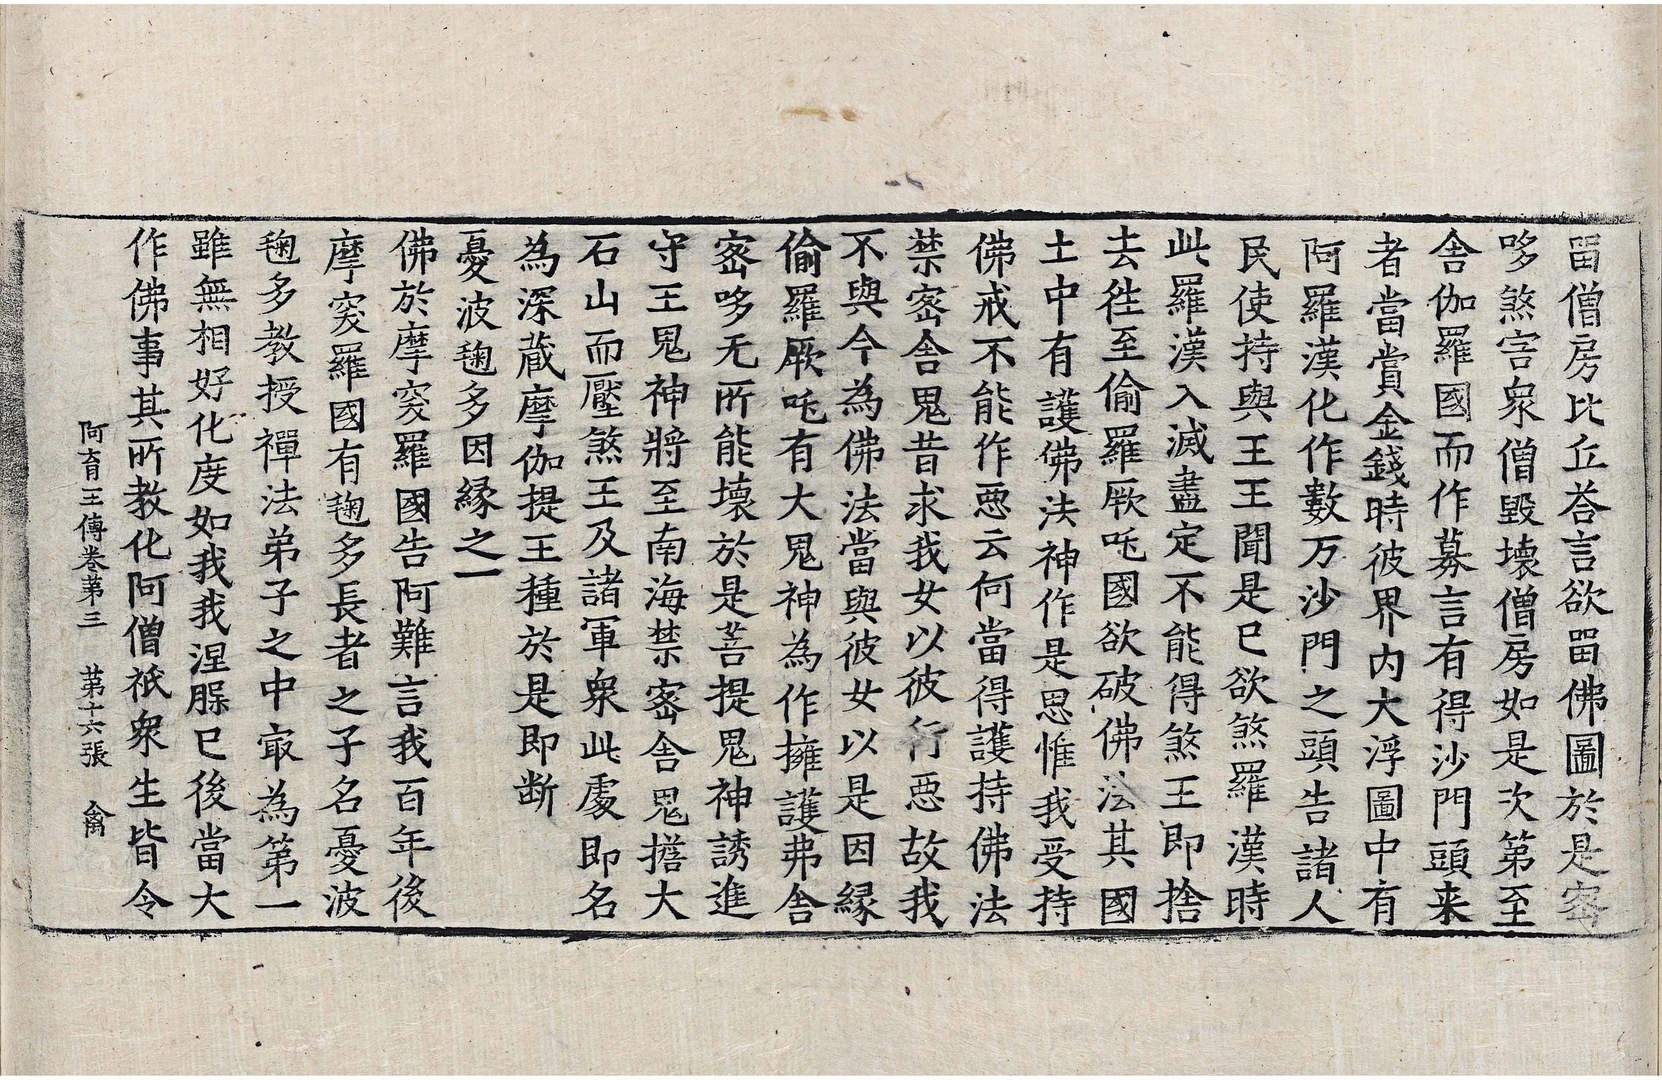 畱僧房比丘荅言欲畱佛圖於是宻
哆煞害衆僧毀壞僧房如是次第至
舍伽羅國而作募言有得沙門頭来
者當賞金錢時彼界内大浮圖中有
阿羅漢化作數万沙門之頭告諸人
民使持與王王聞是已欲煞羅漢時
此羅漢入滅盡定不能得煞王即捨
去徃至偷羅厥吒國欲破佛法其國
土中有護佛法神作是思惟我受持
佛戒不能作惡云何當得護持佛法
禁宻舍鬼昔求我女以彼行惡故我
不與今為佛法當與彼女以是因縁
偷羅厥吒有大鬼神為作擁護弗舍
宻哆无所能壞於是菩提鬼神誘進
守王鬼神將至南海禁宻舍鬼擔大
石山而壓煞王及諸軍衆此處即名
為深藏摩伽提王種於是即断
憂波毱多因縁之一
佛於摩突羅國告阿難言我百年後
摩突羅國有毱多長者之子名憂波
毱多教授禪法弟子之中㝡為第一
雖無相好化度如我我涅槃已後當大
作佛事其所教化阿僧祇衆生皆令
阿育王傳卷第三　第十六張　禽